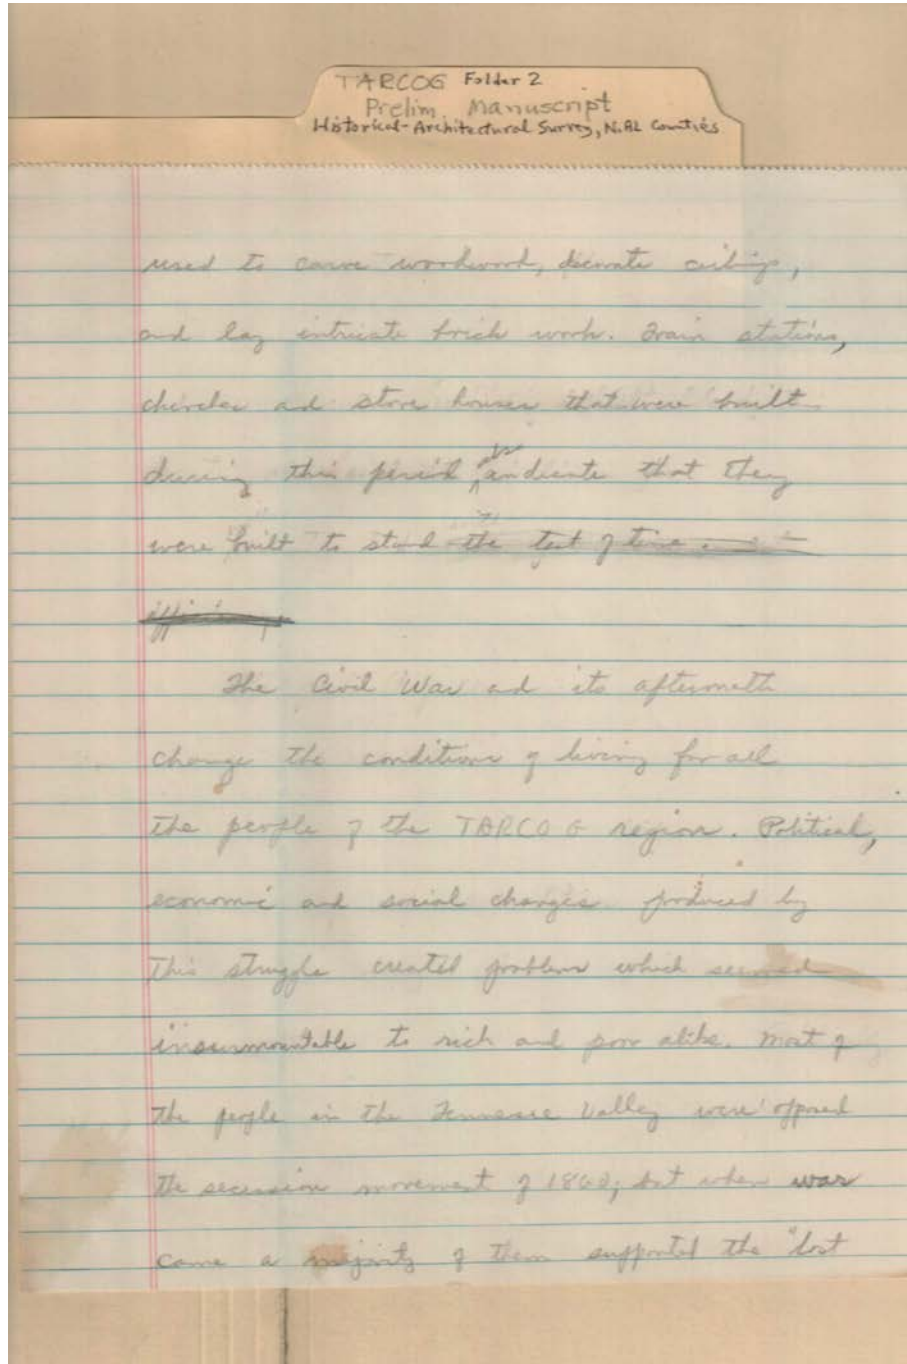 TARCOG Folder 2
Prelim. Manuscript
Historical-Architectural Survey, N. AL Counties
used to carve woodwork, decorate ceilings,
and lay intricate brick work. Train stations,
churches and store houses that were built
during this period also indicate that they
were built to stand the test of time.
The Civil War and its aftermath
change the conditions of living for all
the people of the TARCOG region. Political,
economic and social changes produced by
this struggle created problem which seemed
insurmountable to rich and poor alike. Most of
the people in the Tennessee Valley were opposed
the secession movement of 1860, but when war
came a majority of them supported the "lost